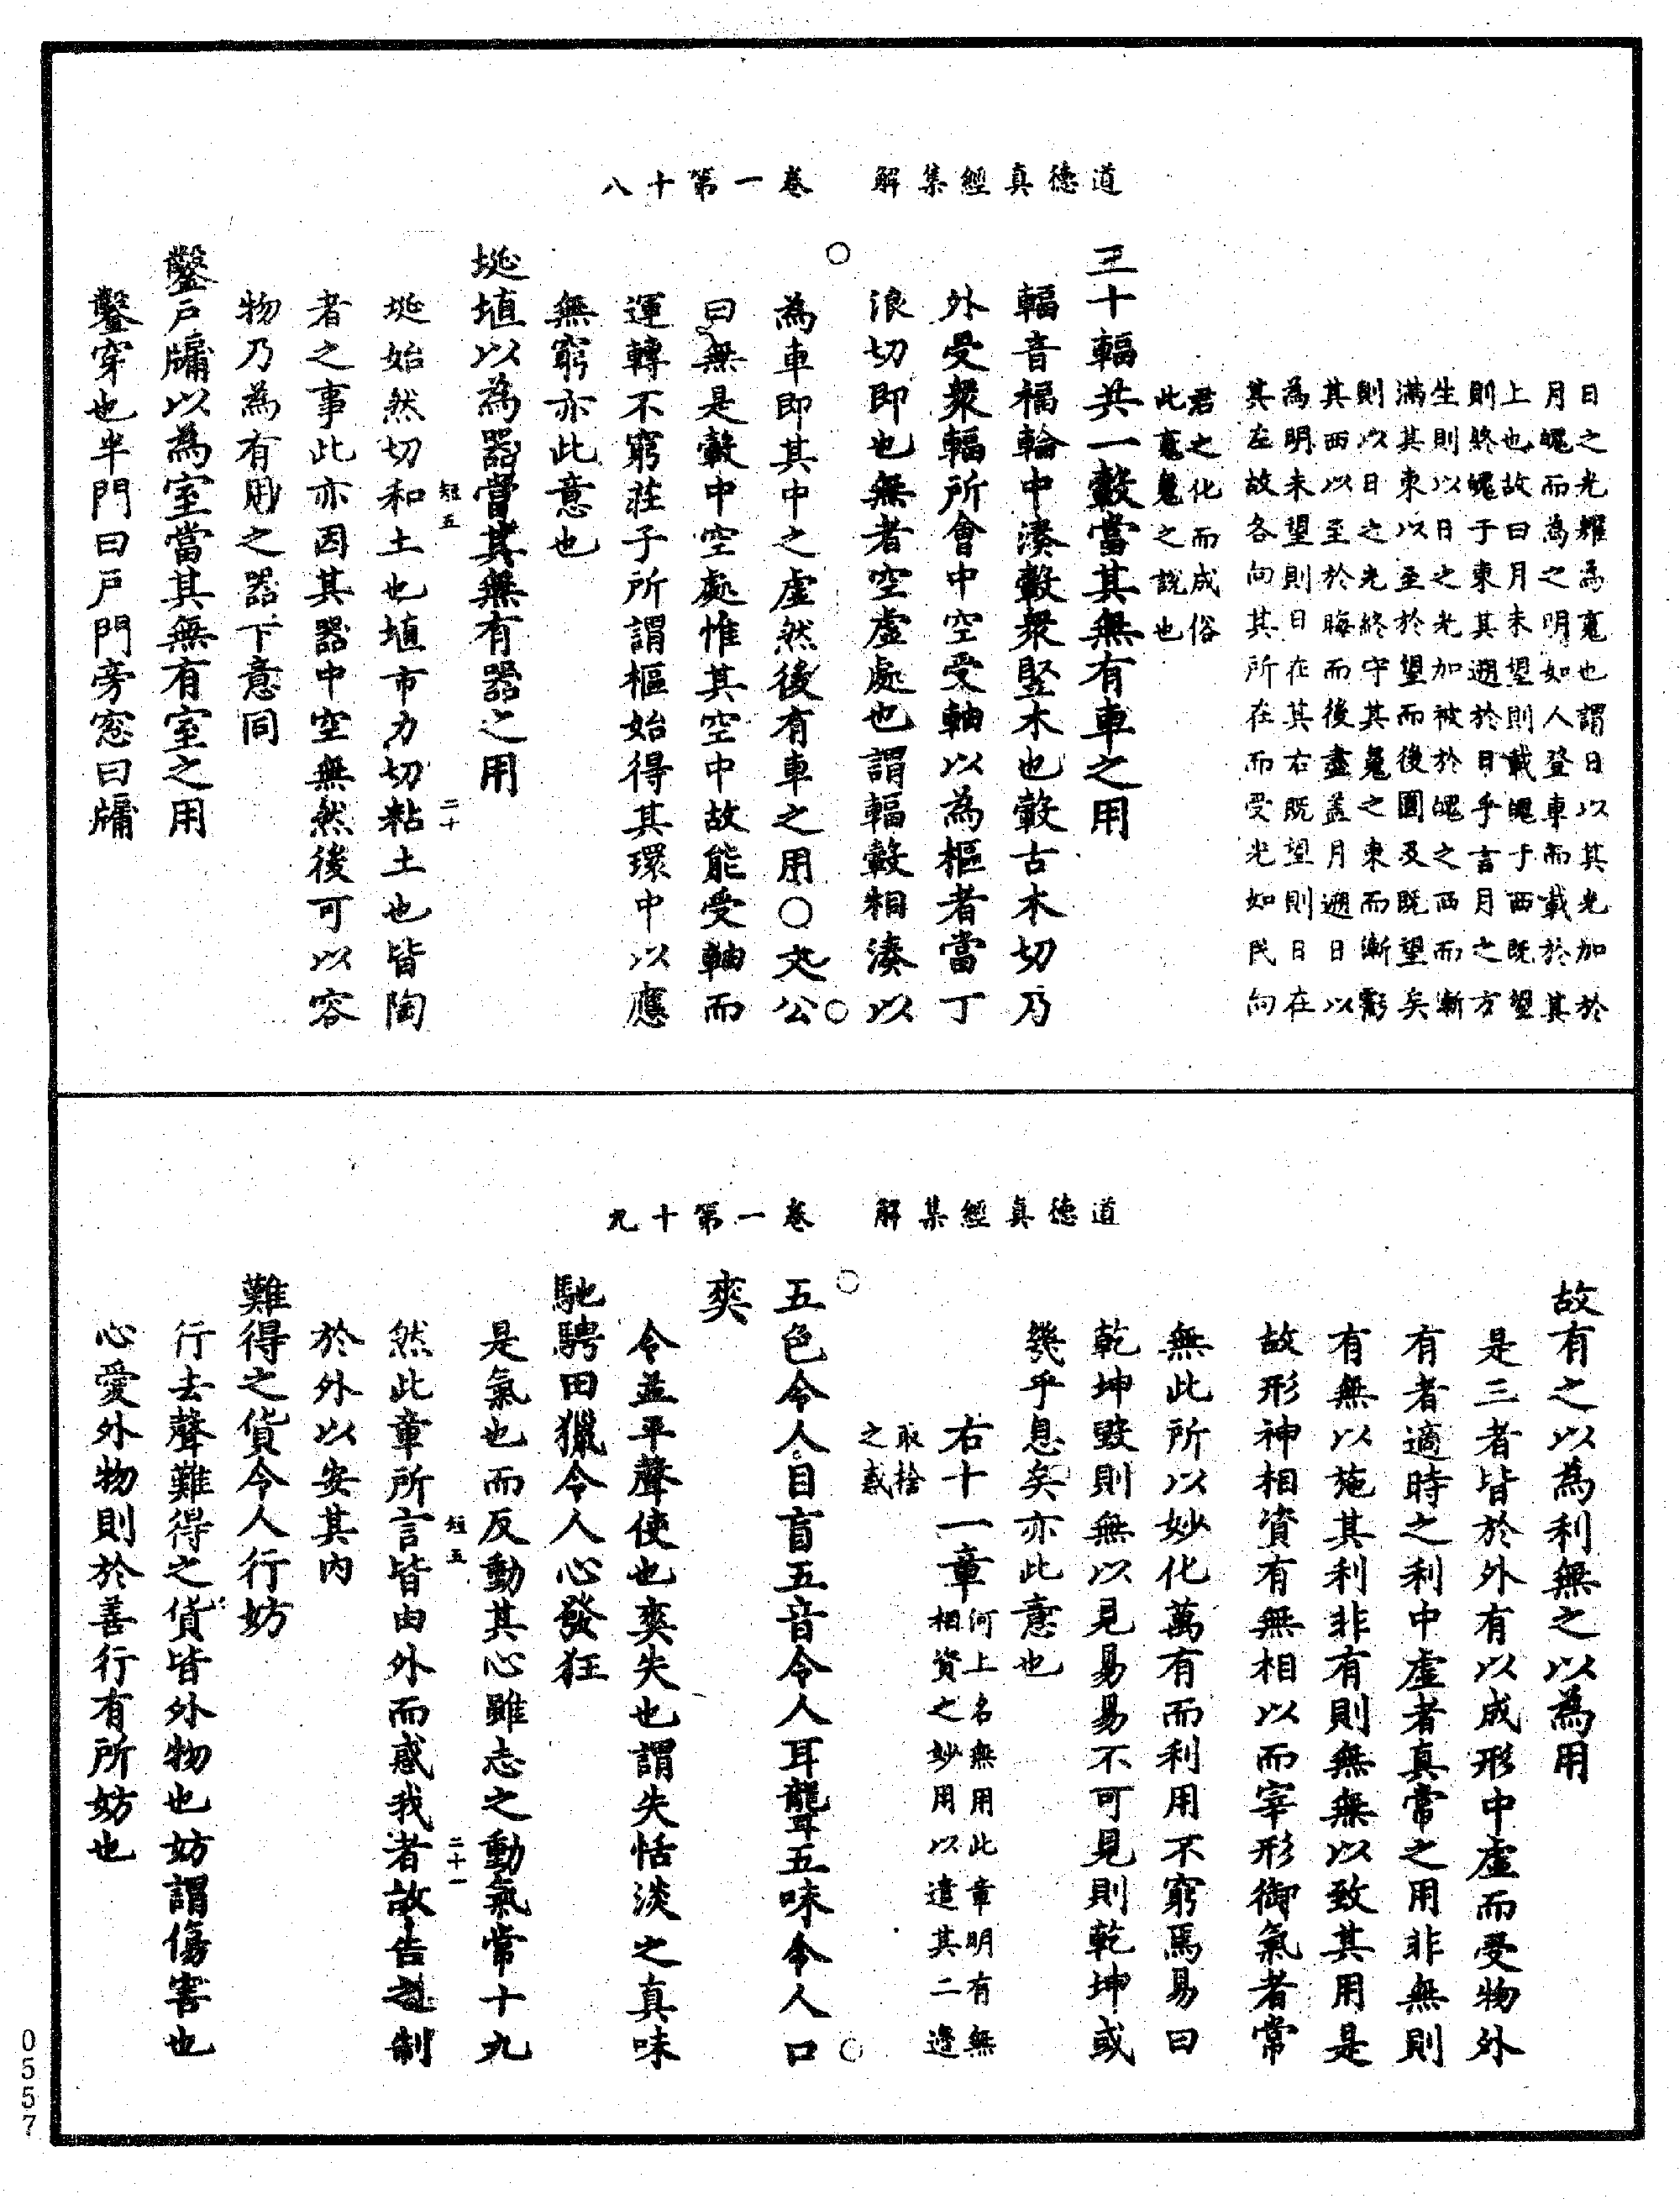 道德真經集解　卷一第十八
日之光耀為䰟也謂日以其光加於
月魄而為之明如人登車而載於其
上也故曰月未望則載魄于西既望
則終魄于東其遡於日乎言月之方
生則以日之光加被於魄之西而漸
滿其東以至於望而後圓及既望矣
則以日之光終守其䰟之東而漸虧
其西以至於晦而後盡蓋月遡日以
為明未望則日在其右既望則日在
其左故各向其所在而受光如民向
君之化而成俗
此䰟魄之說也
三十輻共一轂當其無有車之用
輻音福輪中湊轂衆竪木也轂古木切乃
外受衆輻所會中空受軸以為樞者當丁
浪切即也無者空虛處也謂輻轂相湊以
為車即其中之虛然後有車之用○文公
曰無是轂中空處惟其空中故能受軸而
運轉不窮莊子所謂樞始得其環中以應
無窮亦此意也
埏埴以為器當其無有器之用
埏始然切和土也埴市力切粘土也皆陶
短五　二十
者之事此亦因其器中空無然後可以容
物乃為有用之器下意同
鑿戶牖以為室當其無有室之用
鑿穿也半門曰戶門旁窓曰牖
道德真經集解　卷一第十九
故有之以為利無之以為用
是三者皆於外有以成形中虛而受物外
有者適時之利中虛者真常之用非無則
有無以施其利非有則無無以致其用是
故形神相資有無相以而宰形御氣者常
無此所以妙化萬有而利用不窮焉易曰
乾坤毀則無以見易易不可見則乾坤或
幾乎息矣亦此意也
右十一章何上名無用此章明有無
相資之妙用以遣其二邊
取捨
之惑
五色令人目盲五音令人耳聾五味令人口
爽
令並平聲使也爽失也謂失恬淡之真味
馳騁田獵令人心發狂
是氣也而反動其心雖志之動氣常十九
然此章所言皆由外而惑我者故告之制
短五　二十一
於外以安其內
難得之貨令人行妨
行去聲難得之貨皆外物也妨謂傷害也
心愛外物則於善行有所妨也
0557